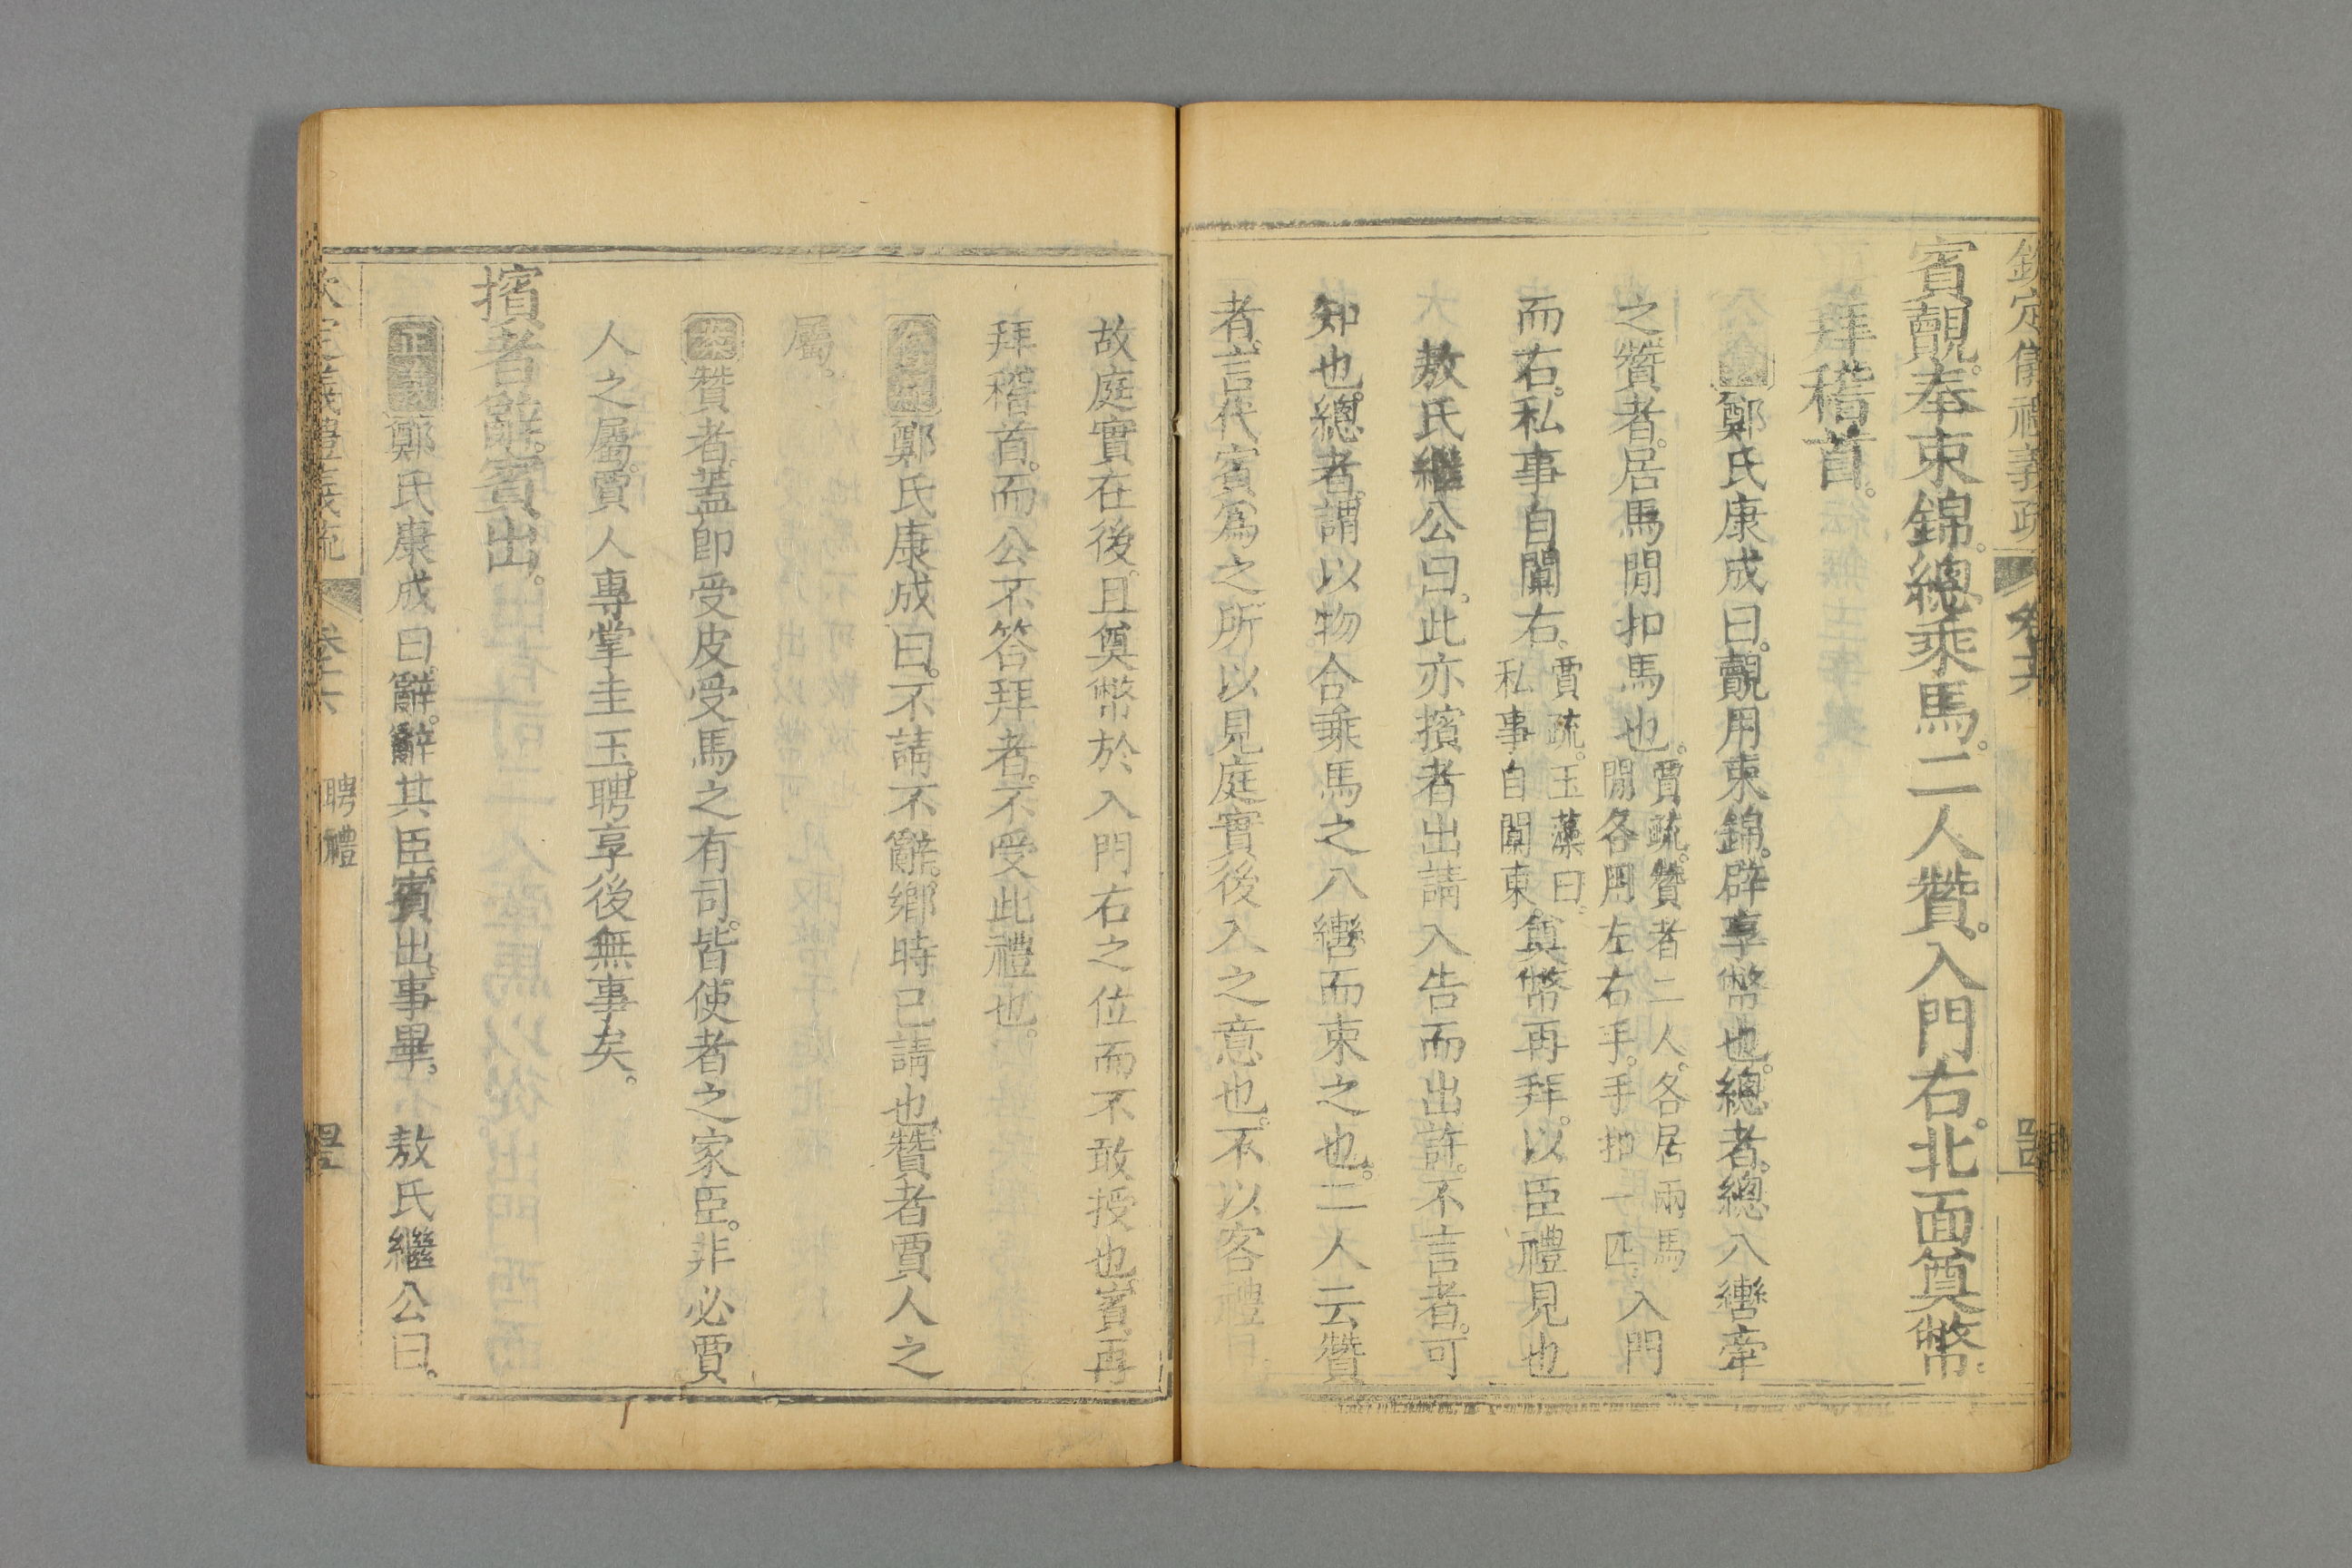 欽定儀禮義疏 卷十六
賓覿。奉束錦。總乘馬。二人贊。入門右。北面奠幣。
再拜稽首。
鄭氏康成曰。覿用束錦。辟享幣也。總者。總八轡牽
之。贊者。居馬閒扣馬也。賈疏。贊者二人。各居兩馬閒。各用左右手。手扣一匹。入門
而右。私事自闑右。賈疏。玉藻曰。私事自闑東。奠幣再拜。以臣禮見也
敖氏繼公曰。此亦擯者出請入告而出許。不言者。可
知也。總者。謂以物合乘馬之八轡而束之也。二人云贊
者。言代賓爲之。所以見庭實後入之意也。不以客禮
故庭實在後。且奠幣於入門右之位而不敢授也。賓再
拜稽首。而公不答拜者。不受此禮也。
鄭氏康成曰。不請不辭。鄉時已請也。贊者。賈人之
屬。
案贊者。蓋即受皮受馬之有司。皆使者之家臣。非必賈
人之屬。賈人專掌圭玉。聘享後無事矣。
擯者辭。賓出。
正義鄭氏康成曰。辭。辭其臣。賓出。事畢。 敖氏繼公曰。
欽定儀禮義疏 卷十六 聘禮